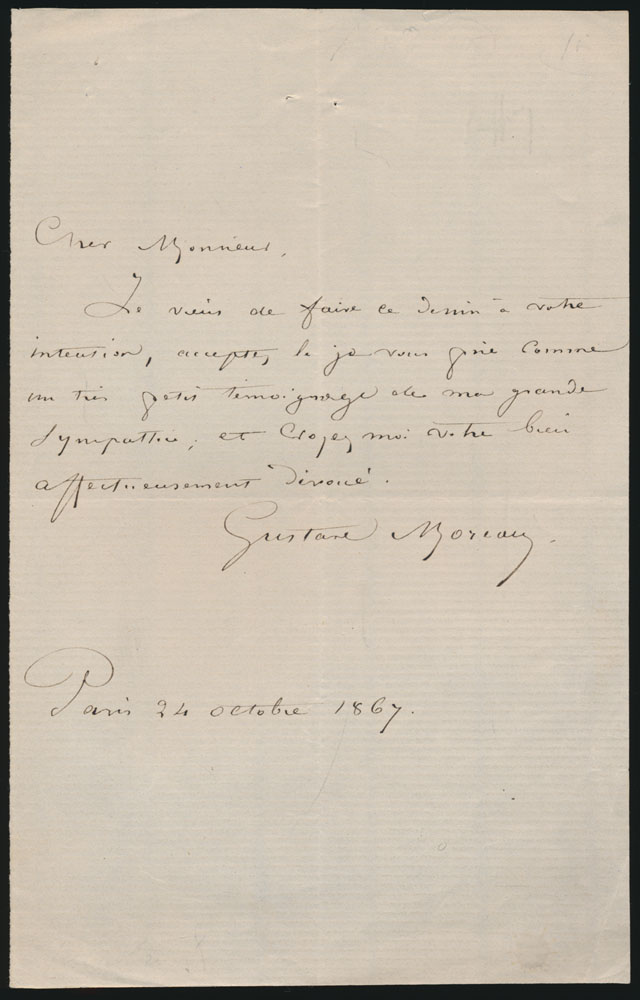 Cher Monsieur,
Je viens de faire ce dessin à votre
intention, acceptez le je vous prie comme
un très petit témoignage de ma grande
sympathie, et croyez moi votre bien
affectueusement dévoué.
Gustave Moreau.
Paris 24 octobre 1867.